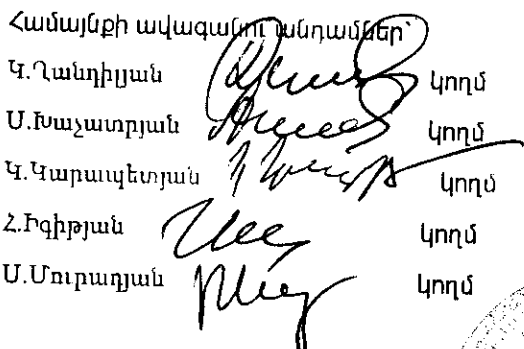 Համայնքի ավագանու անդամներ՝
Կ.Ղանդիլյան կողմ
Ս.Խաչատրյան կողմ
Կ.Կարապետյան կողմ
Հ.Իգիթյան կողմ
Ս.Մուրադյան կողմ